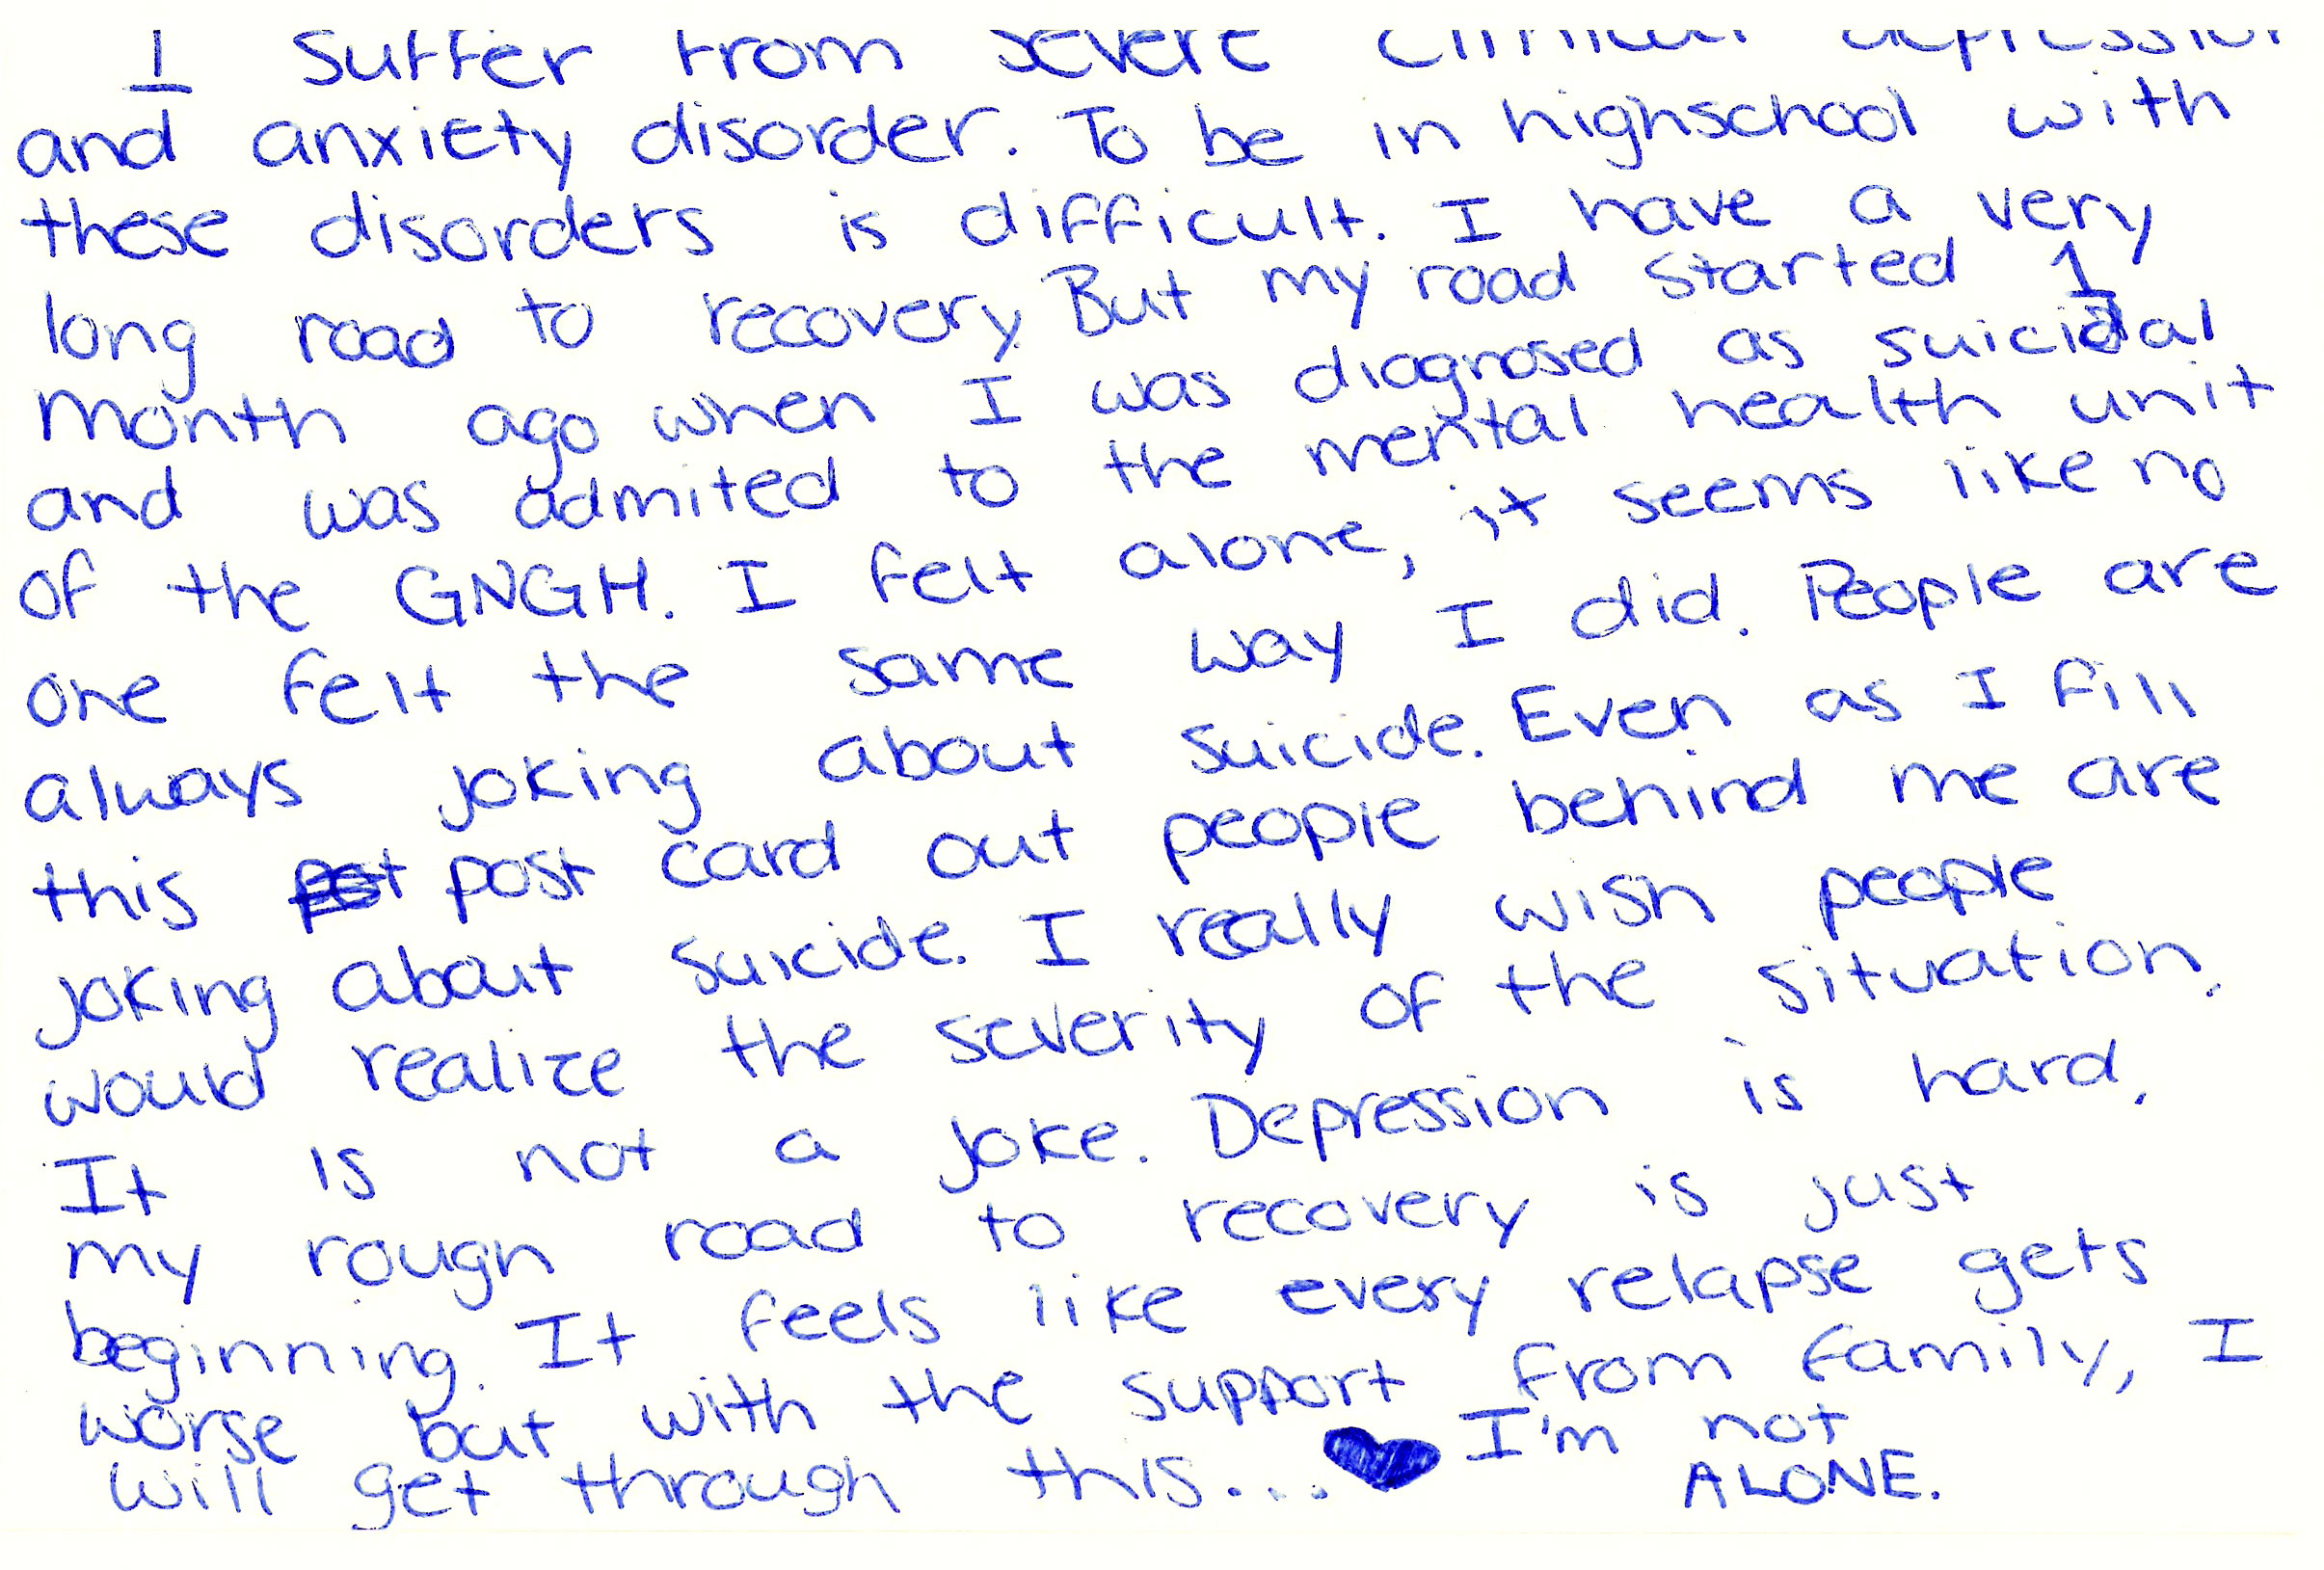 I suffer from severe clinical depression
and anxiety disorder. To be in highschool with
these disorders is difficult. I have a very
long road to recovery. But my road started 1
month ago when I was diagnosed as suicidal
and was admited to the mental health unit
of the GNGH. I felt alone, it seems like no
one felt the same way I did. People are
always joking about suicide. Even as I fill
this post card out people behind me are
joking about suicide. I really wish people
would realize the severity of the situation.
It is not a joke. Depression is hard,
my rough road to recovery is just
beginning. It feels like every relapse gets
worse but with the support from family, I
will get through this... I'm not
ALONE.